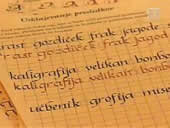 Usklajevanje presledkov
rast gozdiček frak jagode
rast gozdiček frak jagod
kaligrafija velikan bonbo
kaligrafija velikan bonb
učbenik grofija muse